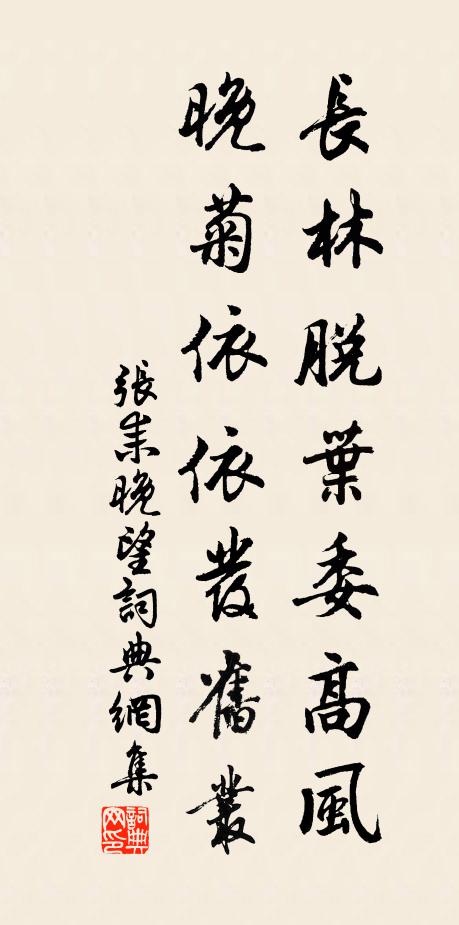 長林脫葉委高風
晚菊依依發舊叢
張耒晚望詞典網集
詞典
网印